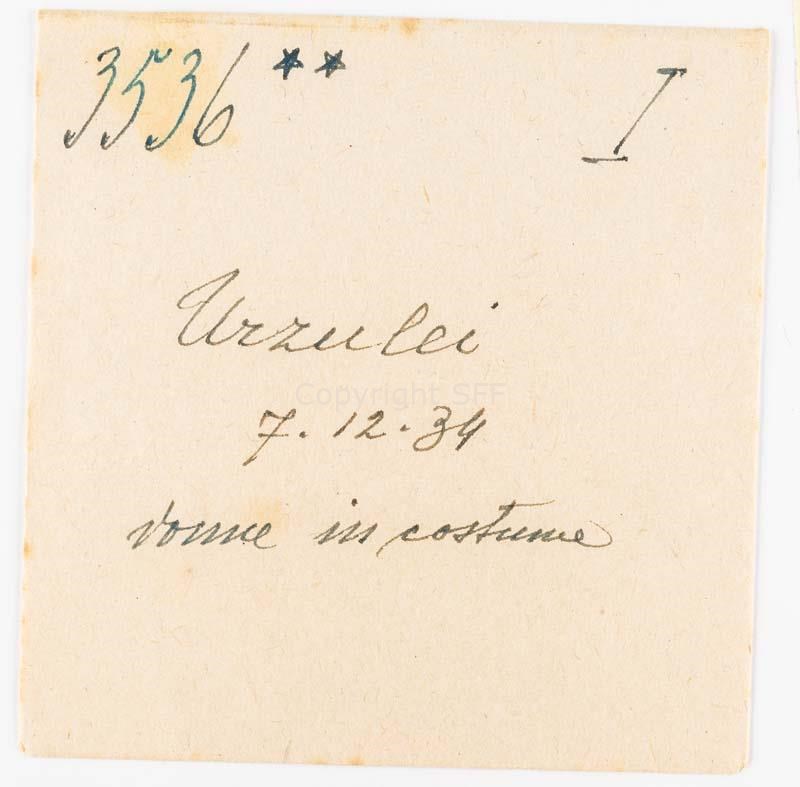 3536 ** I
Urzulei
Copyright SFF
7.12.34
donne in costume